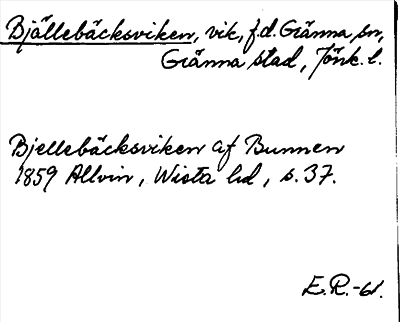 Bjällebäcksviken, vik, f.d. Gränna sn,
Gränna stad, Jönk. l.
Bjellebäcksviken af Bunnen
1859 Allvin, Wista hd, s. 37.
E.R.-61.